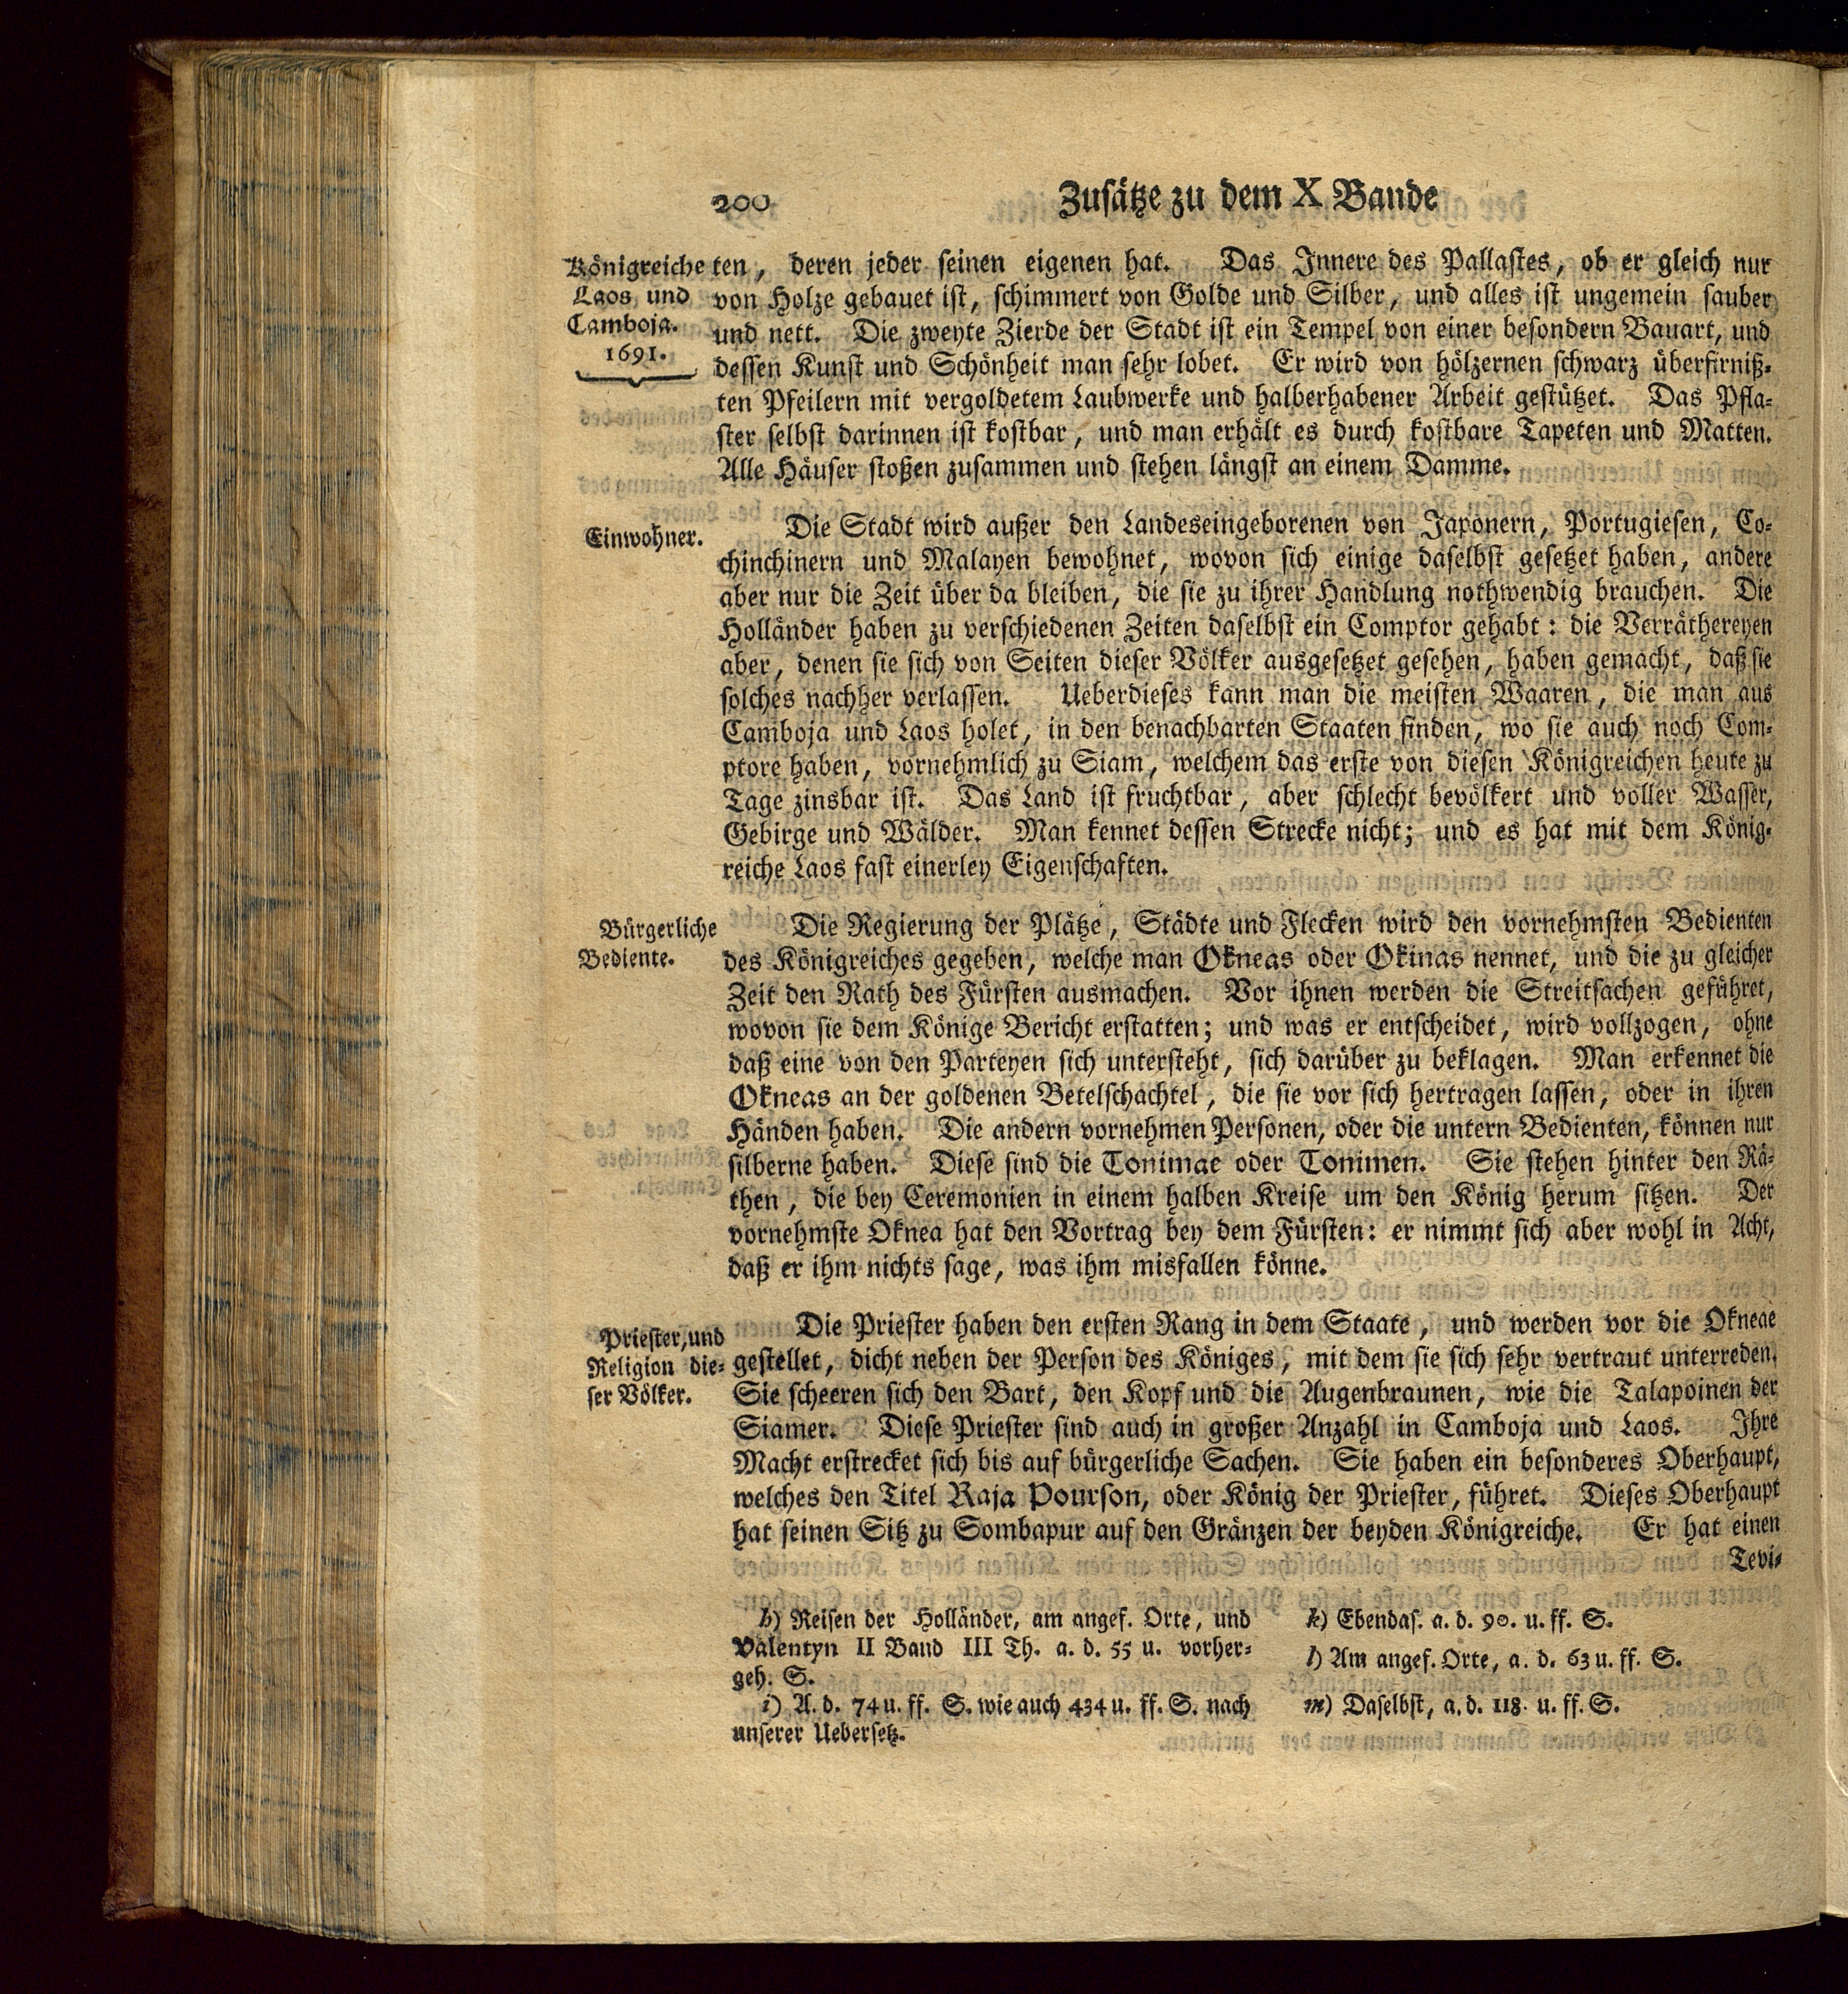 200 Zusätze zu dem X Bande
Königreiche
Laos und
Camboja.
1691.
ten, deren jeder seinen eigenen hat. Das Innere des Pallastes, ob er gleich nur
von Holze gebauet ist, schimmert von Golde und Silber, und alles ist ungemein sauber
und nett. Die zweyte Zierde der Stadt ist ein Tempel von einer besondern Bauart, und
dessen Kunst und Schönheit man sehr lobet. Er wird von hölzernen schwarz überfirniß-
ten Pfeilern mit vergoldetem Laubwerke und halberhabener Arbeit gestützet. Das Pfla-
ster selbst darinnen ist kostbar, und man erhält es durch kostbare Tapeten und Matten.
Alle Häuser stoßen zusammen und stehen längst an einem Damme.
Einwohner.
Die Stadt wird außer den Landeseingeborenen von Japonern, Portugiesen, Co-
chinchinern und Malayen bewohnet, wovon sich einige daselbst gesetzet haben, andere
aber nur die Zeit über da bleiben, die sie zu ihrer Handlung nothwendig brauchen. Die
Holländer haben zu verschiedenen Zeiten daselbst ein Comptor gehabt: die Verräthereyen
aber, denen sie sich von Seiten dieser Völker ausgesetzet gesehen, haben gemacht, daß sie
solches nachher verlassen. Ueberdieses kann man die meisten Waaren, die man aus
Camboja und Laos holet, in den benachbarten Staaten finden, wo sie auch noch Com-
ptore haben, vornehmlich zu Siam, welchem das erste von diesen Königreichen heute zu
Tage zinsbar ist. Das Land ist fruchtbar, aber schlecht bevölkert und voller Wasser,
Gebirge und Wälder. Man kennet dessen Strecke nicht; und es hat mit dem König-
reiche Laos fast einerley Eigenschaften.
Bürgerliche
Bediente.
Die Regierung der Plätze, Städte und Flecken wird den vornehmsten Bedienten
des Königreiches gegeben, welche man Okneas oder Okinas nennet, und die zu gleicher
Zeit den Rath des Fürsten ausmachen. Vor ihnen werden die Streitsachen geführet,
wovon sie dem Könige Bericht erstatten; und was er entscheidet, wird vollzogen, ohne
daß eine von den Parteyen sich untersteht, sich darüber zu beklagen. Man erkennet die
Okneas an der goldenen Betelschachtel, die sie vor sich hertragen lassen, oder in ihren
Händen haben. Die andern vornehmen Personen, oder die untern Bedienten, können nur
silberne haben. Diese sind die Tonimae oder Tonimen. Sie stehen hinter den Rä-
then, die bey Ceremonien in einem halben Kreise um den König herum sitzen. Der
vornehmste Oknea hat den Vortrag bey dem Fürsten: er nimmt sich aber wohl in Acht,
daß er ihm nichts sage, was ihm misfallen könne.
Priester, und
Religion die-
ser Völker.
Die Priester haben den ersten Rang in dem Staate, und werden vor die Okneae
gestellet, dicht neben der Person des Königes, mit dem sie sich sehr vertraut unterreden.
Sie scheeren sich den Bart, den Kopf und die Augenbraunen, wie die Talapoinen der
Siamer. Diese Priester sind auch in großer Anzahl in Camboja und Laos. Ihre
Macht erstrecket sich bis auf bürgerliche Sachen. Sie haben ein besonderes Oberhaupt,
welches den Titel Raja Pourson, oder König der Priester, führet. Dieses Oberhaupt
hat seinen Sitz zu Sombapur auf den Gränzen der beyden Königreiche. Er hat einen
Tevi-
h) Reisen der Holländer, am angef. Orte, und
Valentyn II Band III Th. a. d. 55 u. vorher-
geh. S.
i) A. d. 74 u. ff. S. wie auch 434 u. ff. S. nach
unserer Uebersetz.
k) Ebendas. a. d. 90. u. ff. S.
l) Am angef. Orte, a. d. 63 u. ff. S.
m) Daselbst, a. d. 118. u. ff. S.